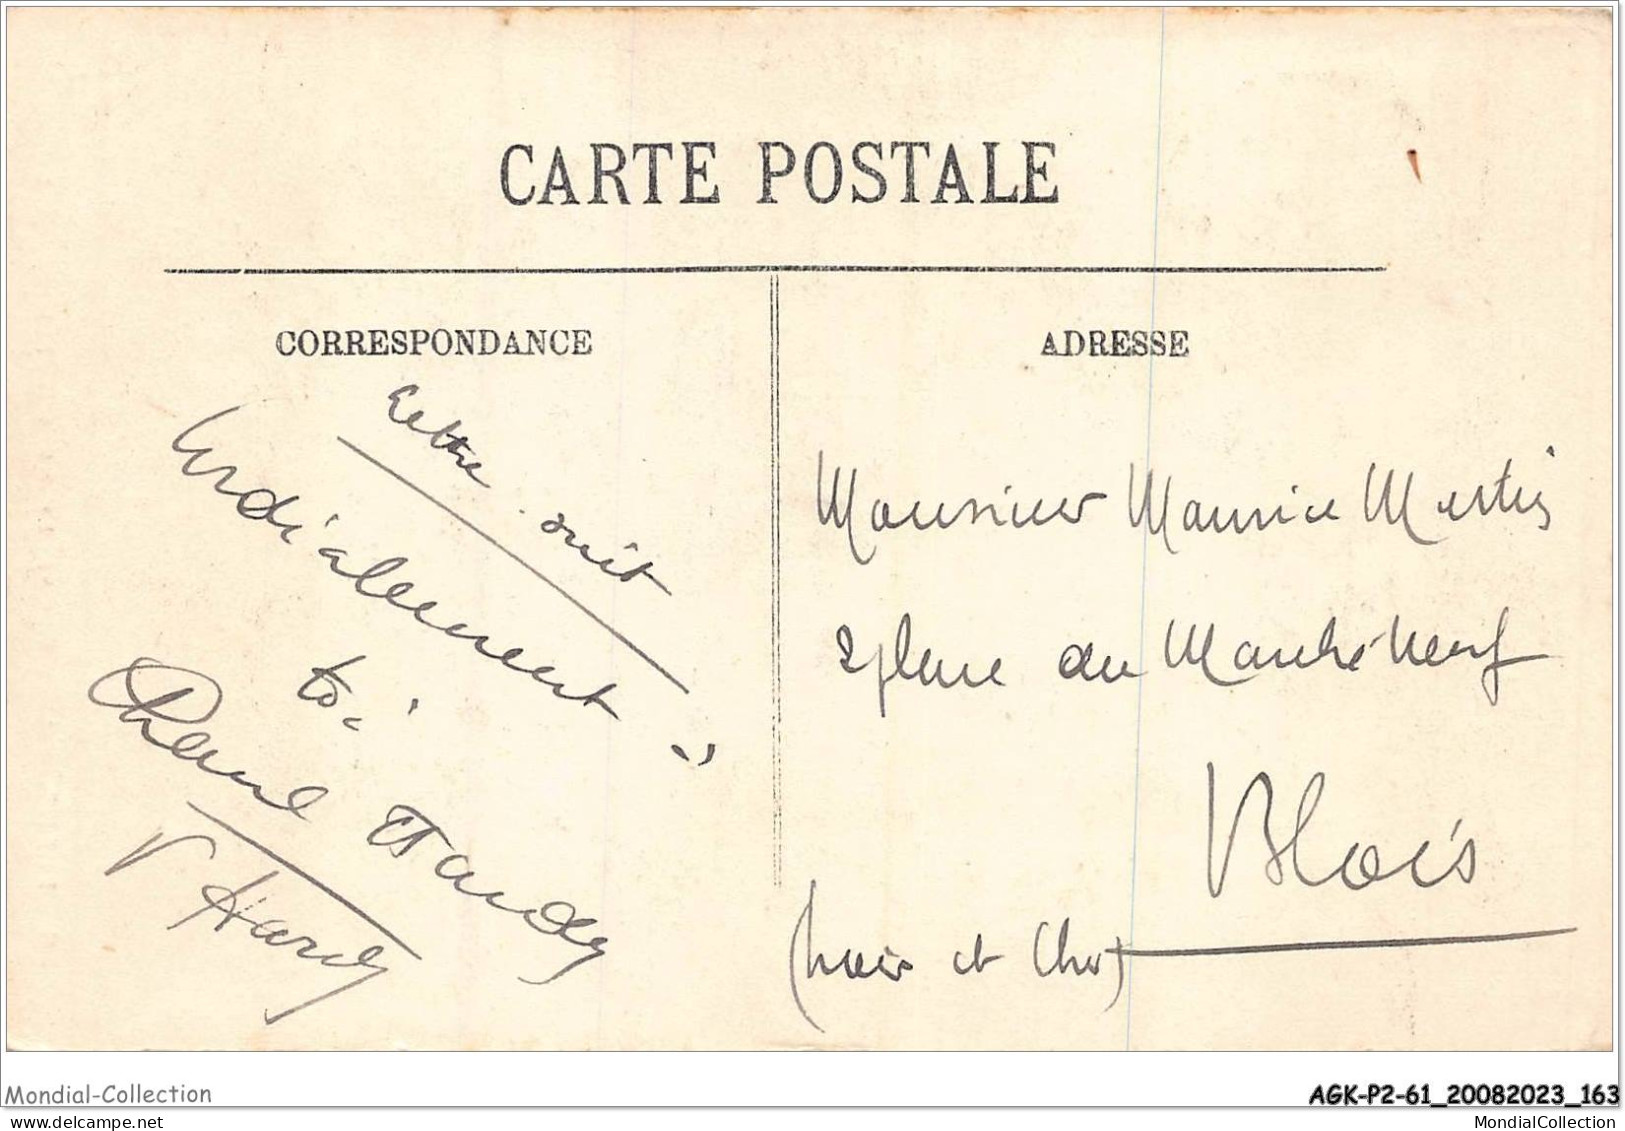 CARTE POSTALE
CORRESPONDANCE
Lettre suit
Cordialement
à
toi
Hardy
Hardy
ADRESSE
Monsieur Maurice
2 place du Marché Neuf
Blois
(Loir et Cher)
Mondial-Collection
AGK-P2-61_20082023_163
MondialCollection